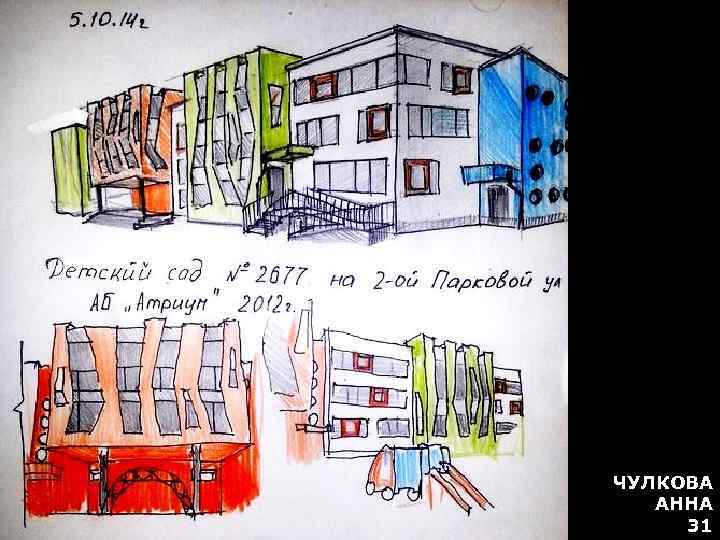 5.10.14г
Детский сад №2677 на 2-ой Парковой ул
АБ „Атриум" 2012г.
ЧУЛКОВА
АННА
31